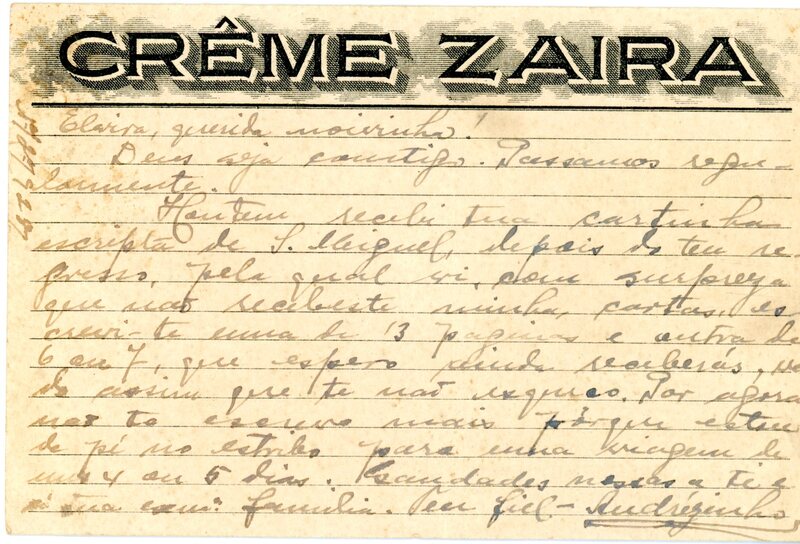 CRÊME ZAIRA
Elvira, querida noivinha!
Deus seja comtigo. Passamos regu-
larmente.
Hontem recebi tua cartinha
escripta de S. Miguel, depois do teu re-
gresso, pela qual vi, com surpreza
que não recebeste minhas cartas, es
crevi-te uma de 13 paginas e outra de
6 ou 7, que espero ainda receberás,
do assim que te não esqueço. Por agora
não te escrevo mais pórque estou
de pé no estribo para uma viagem de
uns 4 ou 5 dias. Saudades nossas a ti e
á tua exmª familia. Teu fiel - Andrézinho